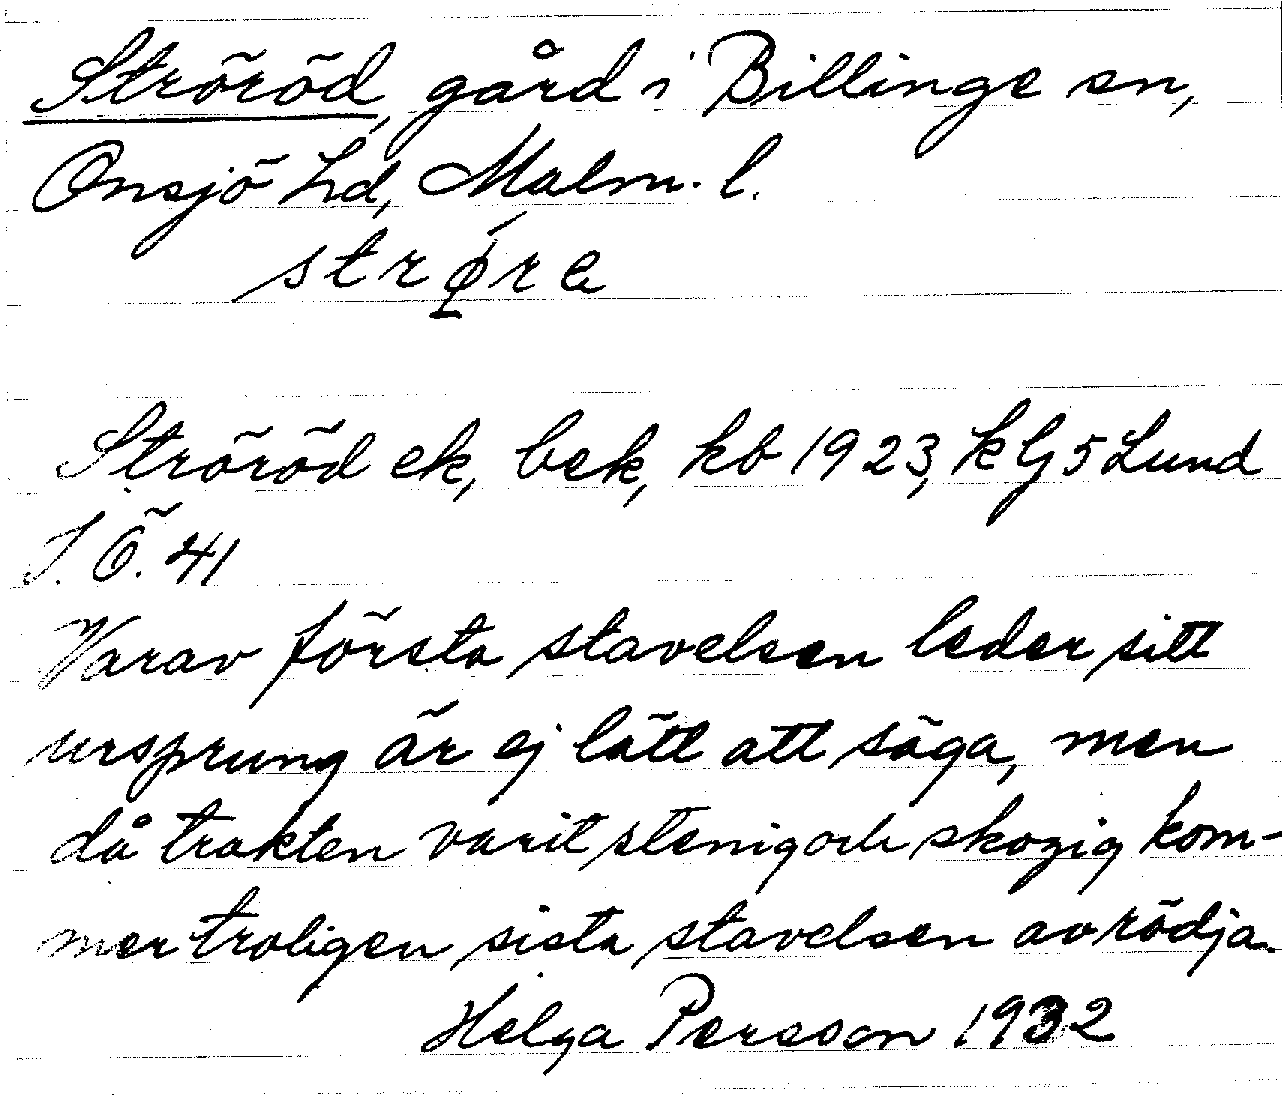 Ströröd, gård i Billinge sn,
Onsjö hd, Malm. l.
strǿ̱rɐ
Ströröd ek, bek, kb 1923, K G 5 Lund
S. Ö. 41
Varav första stavelsen leder sitt
ursprung är ej lätt att säga, men
då trakten varit stenig och skogig kom-
mer troligen sista stavelsen av rödja.
Helga Persson 1932